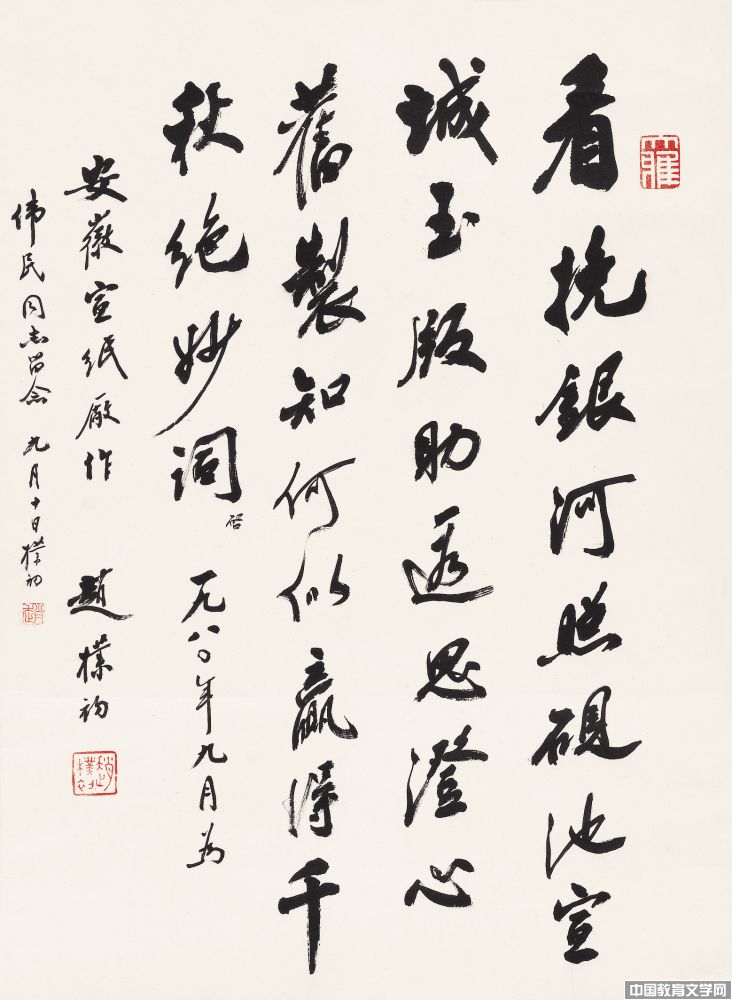 看挽銀河照硯池宣
城玉版助遐思澄心
舊製知何似贏得千
秋絶妙詞
一九八〇年九月为
安徽宣紙厰作 趙樸初
伟民同志留念 九月十日樸初
趙樸初
中国教育文学网